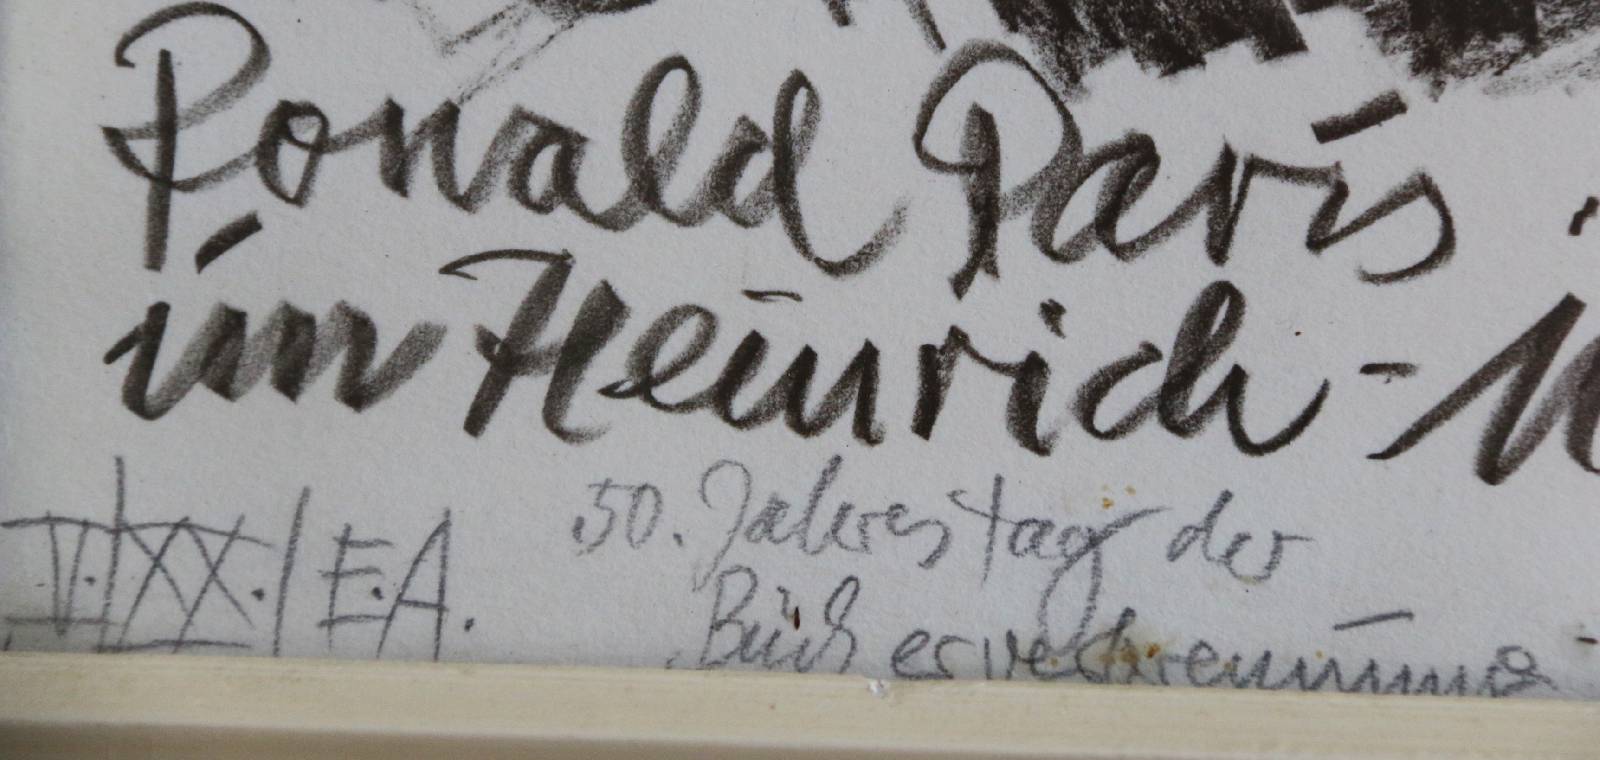 Ronald Paris
im Heinrich-
V./XX./E.A. 50. Jahrestag der
Bücherverbrennung